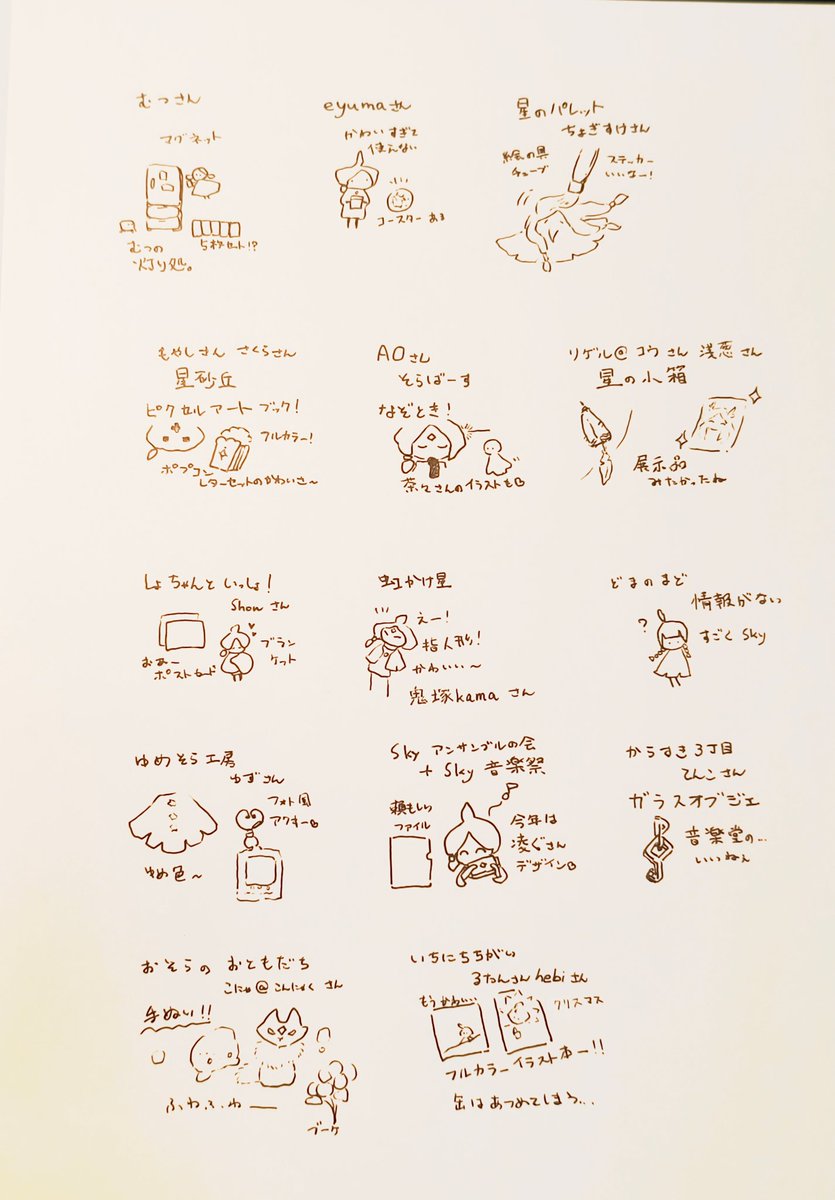 むつさん
マグネット
むつの
灯り処。
5枚セット!?
eyumaさん
かわいすぎて
使えない
コースターある
星のパレット
ちょぎすけさん
絵の具
チューブ
ステッカー
いいなー!
もやしさん さくらさん
星砂丘
ピクセルアートブック!
フルカラー!
ポプコン
レターセットのかわいさ〜
AOさん
そらばーす
なぞとき!
茶々さんのイラストも
リゲル@コウさん 浅葱さん
星の小箱
展示品
みたかったね
しょちゃんといっしょ!
Showさん
ブラン
ケット
おあー
ポストカード
虹かけ星
えー!
指人形!
かわいい〜
鬼塚kamaさん
どまのまど
情報がない
?
すごくsky
ゆめそら工房
ゆずさん
フォト風
アクキー
ゆめ色〜
Sky アンサンブルの会
+ Sky 音楽祭
頼もしい
ファイル
今年は
凌ぐさん
デザイン
からすき3丁目
てんこさん
ガラスオブジェ
音楽堂の…
いいねぇ
おそらの おともだち
こにゃ@こんにゃくさん
手ぬい!!
ふわふわー
ブーケ
いちにちちがい
るたんさん hebiさん
もうかわいい
クリスマス
フルカラーイラスト本ー!!
缶はあつめてしまう…